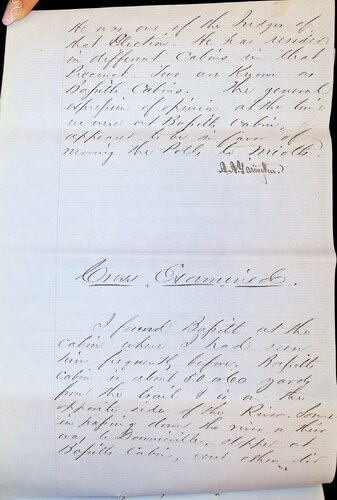 He was one of the Judges of
that Election. He has resided
in different Cabins in that
Precinct. Two are Known as
Cabins. The general
expression of opinion at the time
in and at Cabin,
appeared to be in favor of
moving the Polls to Middle

Cross Examined.
I found at the
cabin where I had seen
him frequently before.
Cabin is about 50 or 60 yards
from the trail & is on the
opposite side of the River. Some
in passing down the river on their
way to stopped at
Cabin, and others did